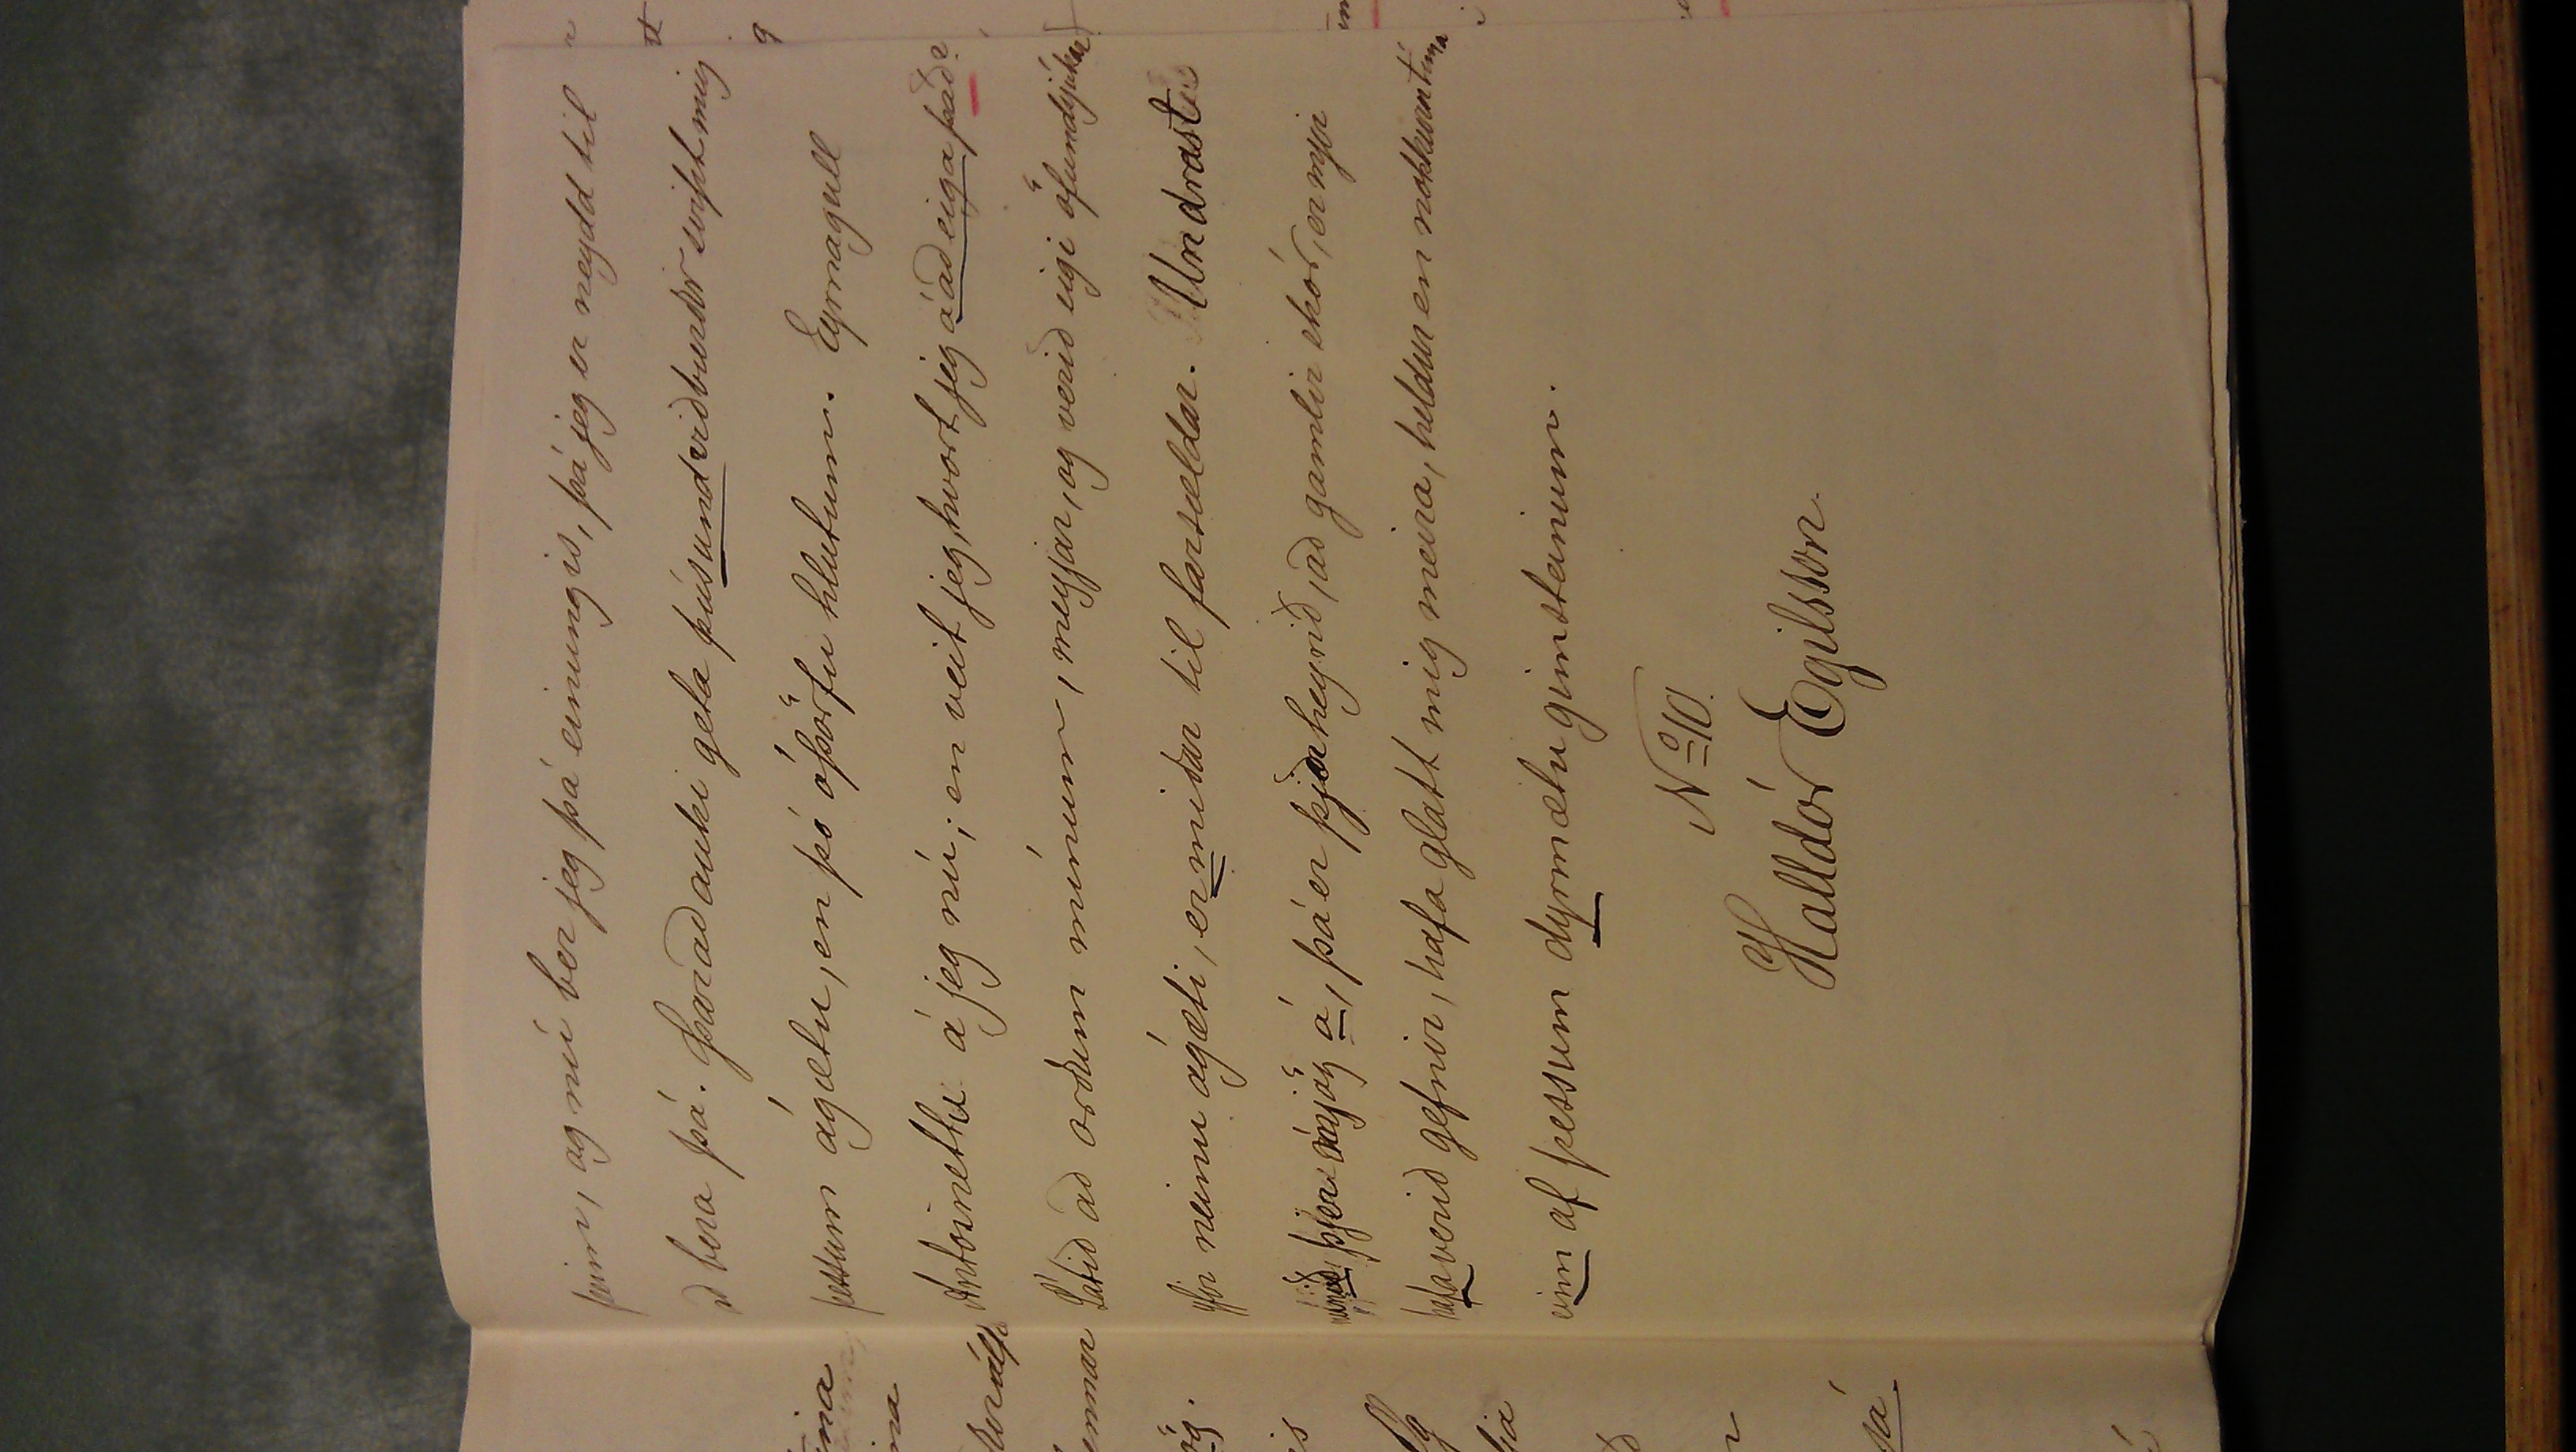 þeim, og nú ber jeg þá einungis, þá jeg er neydd til
að bera þá. Þar að auki geta þúsund viðburðir svipt mig
þessum ágætu, en þó óþörfu hlutum. Eyrnagull
Antoinettu á jeg nú; en veit jeg hvort jeg á að eiga það?
Látið að orðum mínum, meyjar, og verið eigi öfundsjúkar
yfir neinu ágæti, er miðar til farsældar. Undrast
þjer mjög á, þá er þjer heyrið, að gamlir skór, er mjer
hafa verið gefnir, hafa glatt mig meira, heldur en nokkurntíma
einn af þessum dyrmætu gimsteinum.
No 10.
Halldór Egilsson.